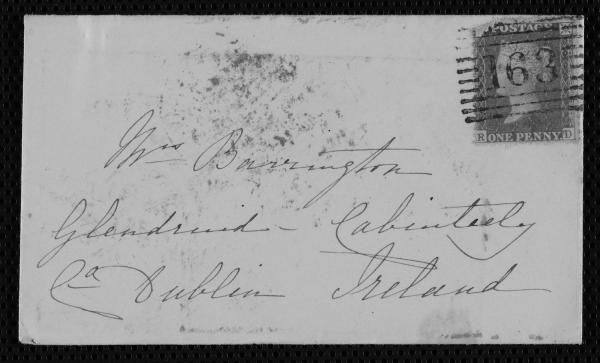 POSTAGE
163
R ONE PENNY D
Mrs Barrington
Glendruid - Cabinteely
Co Dublin Ireland